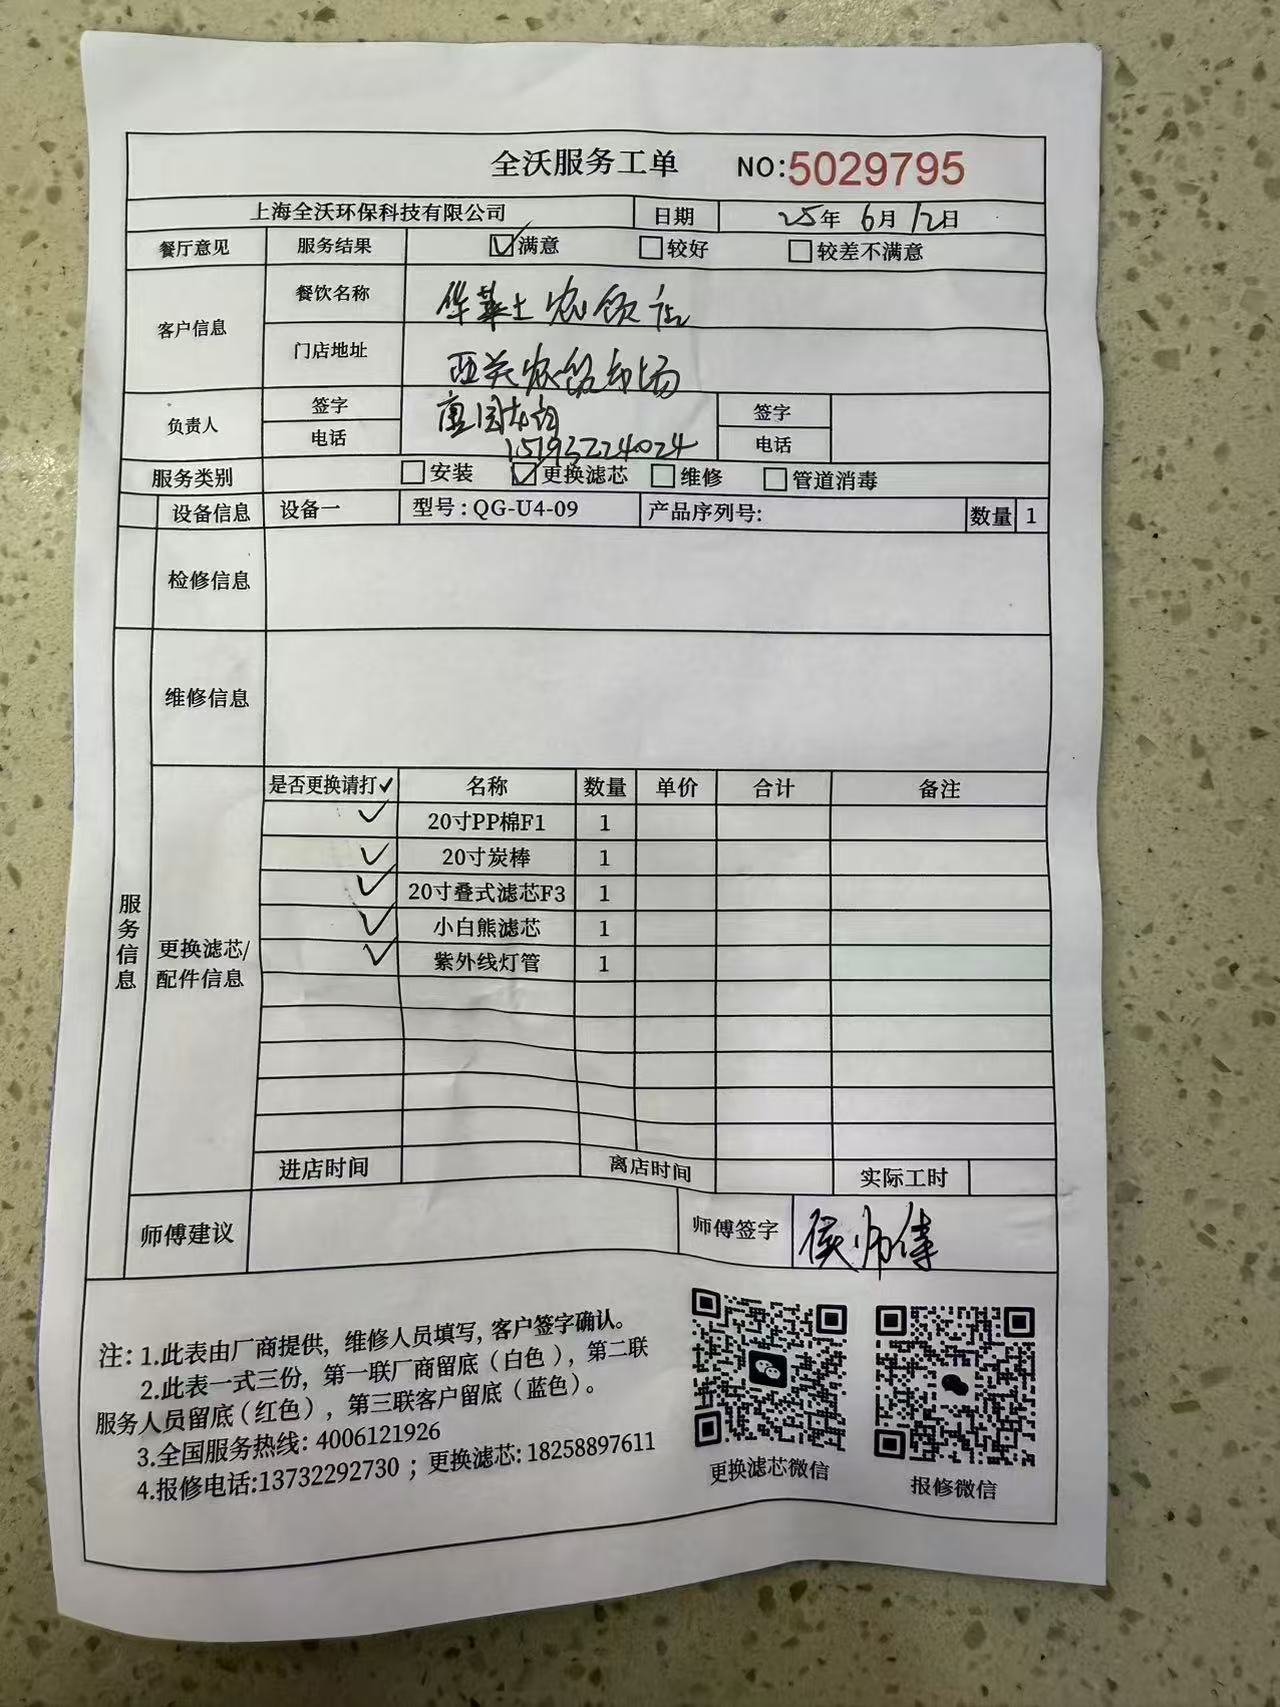 全沃服务工单 NO:5029795
上海全沃环保科技有限公司 日期 25年 6月 12日
餐厅意见 服务结果 ☑满意 □较好 □较差不满意
客户信息 餐饮名称 华莱士
门店地址 西关农贸市场
负责人 签字 签字
电话 15193224024 电话
服务类别 □安装 ☑更换滤芯 □维修 □管道消毒
设备信息 设备一 型号：QG-U4-09 产品序列号: 数量 1
检修信息
维修信息
服务信息
更换滤芯/配件信息
是否更换请打✓ 名称 数量 单价 合计 备注
✓ 20寸PP棉F1 1
✓ 20寸炭棒 1
✓ 20寸叠式滤芯F3 1
✓ 小白熊滤芯 1
✓ 紫外线灯管 1
进店时间 离店时间 实际工时
师傅建议 师傅签字 侯师傅
注：1.此表由厂商提供，维修人员填写，客户签字确认。
2.此表一式三份，第一联厂商留底（白色），第二联
服务人员留底（红色），第三联客户留底（蓝色）。
3.全国服务热线：4006121926
4.报修电话:13732292730 ；更换滤芯: 18258897611
更换滤芯微信 报修微信